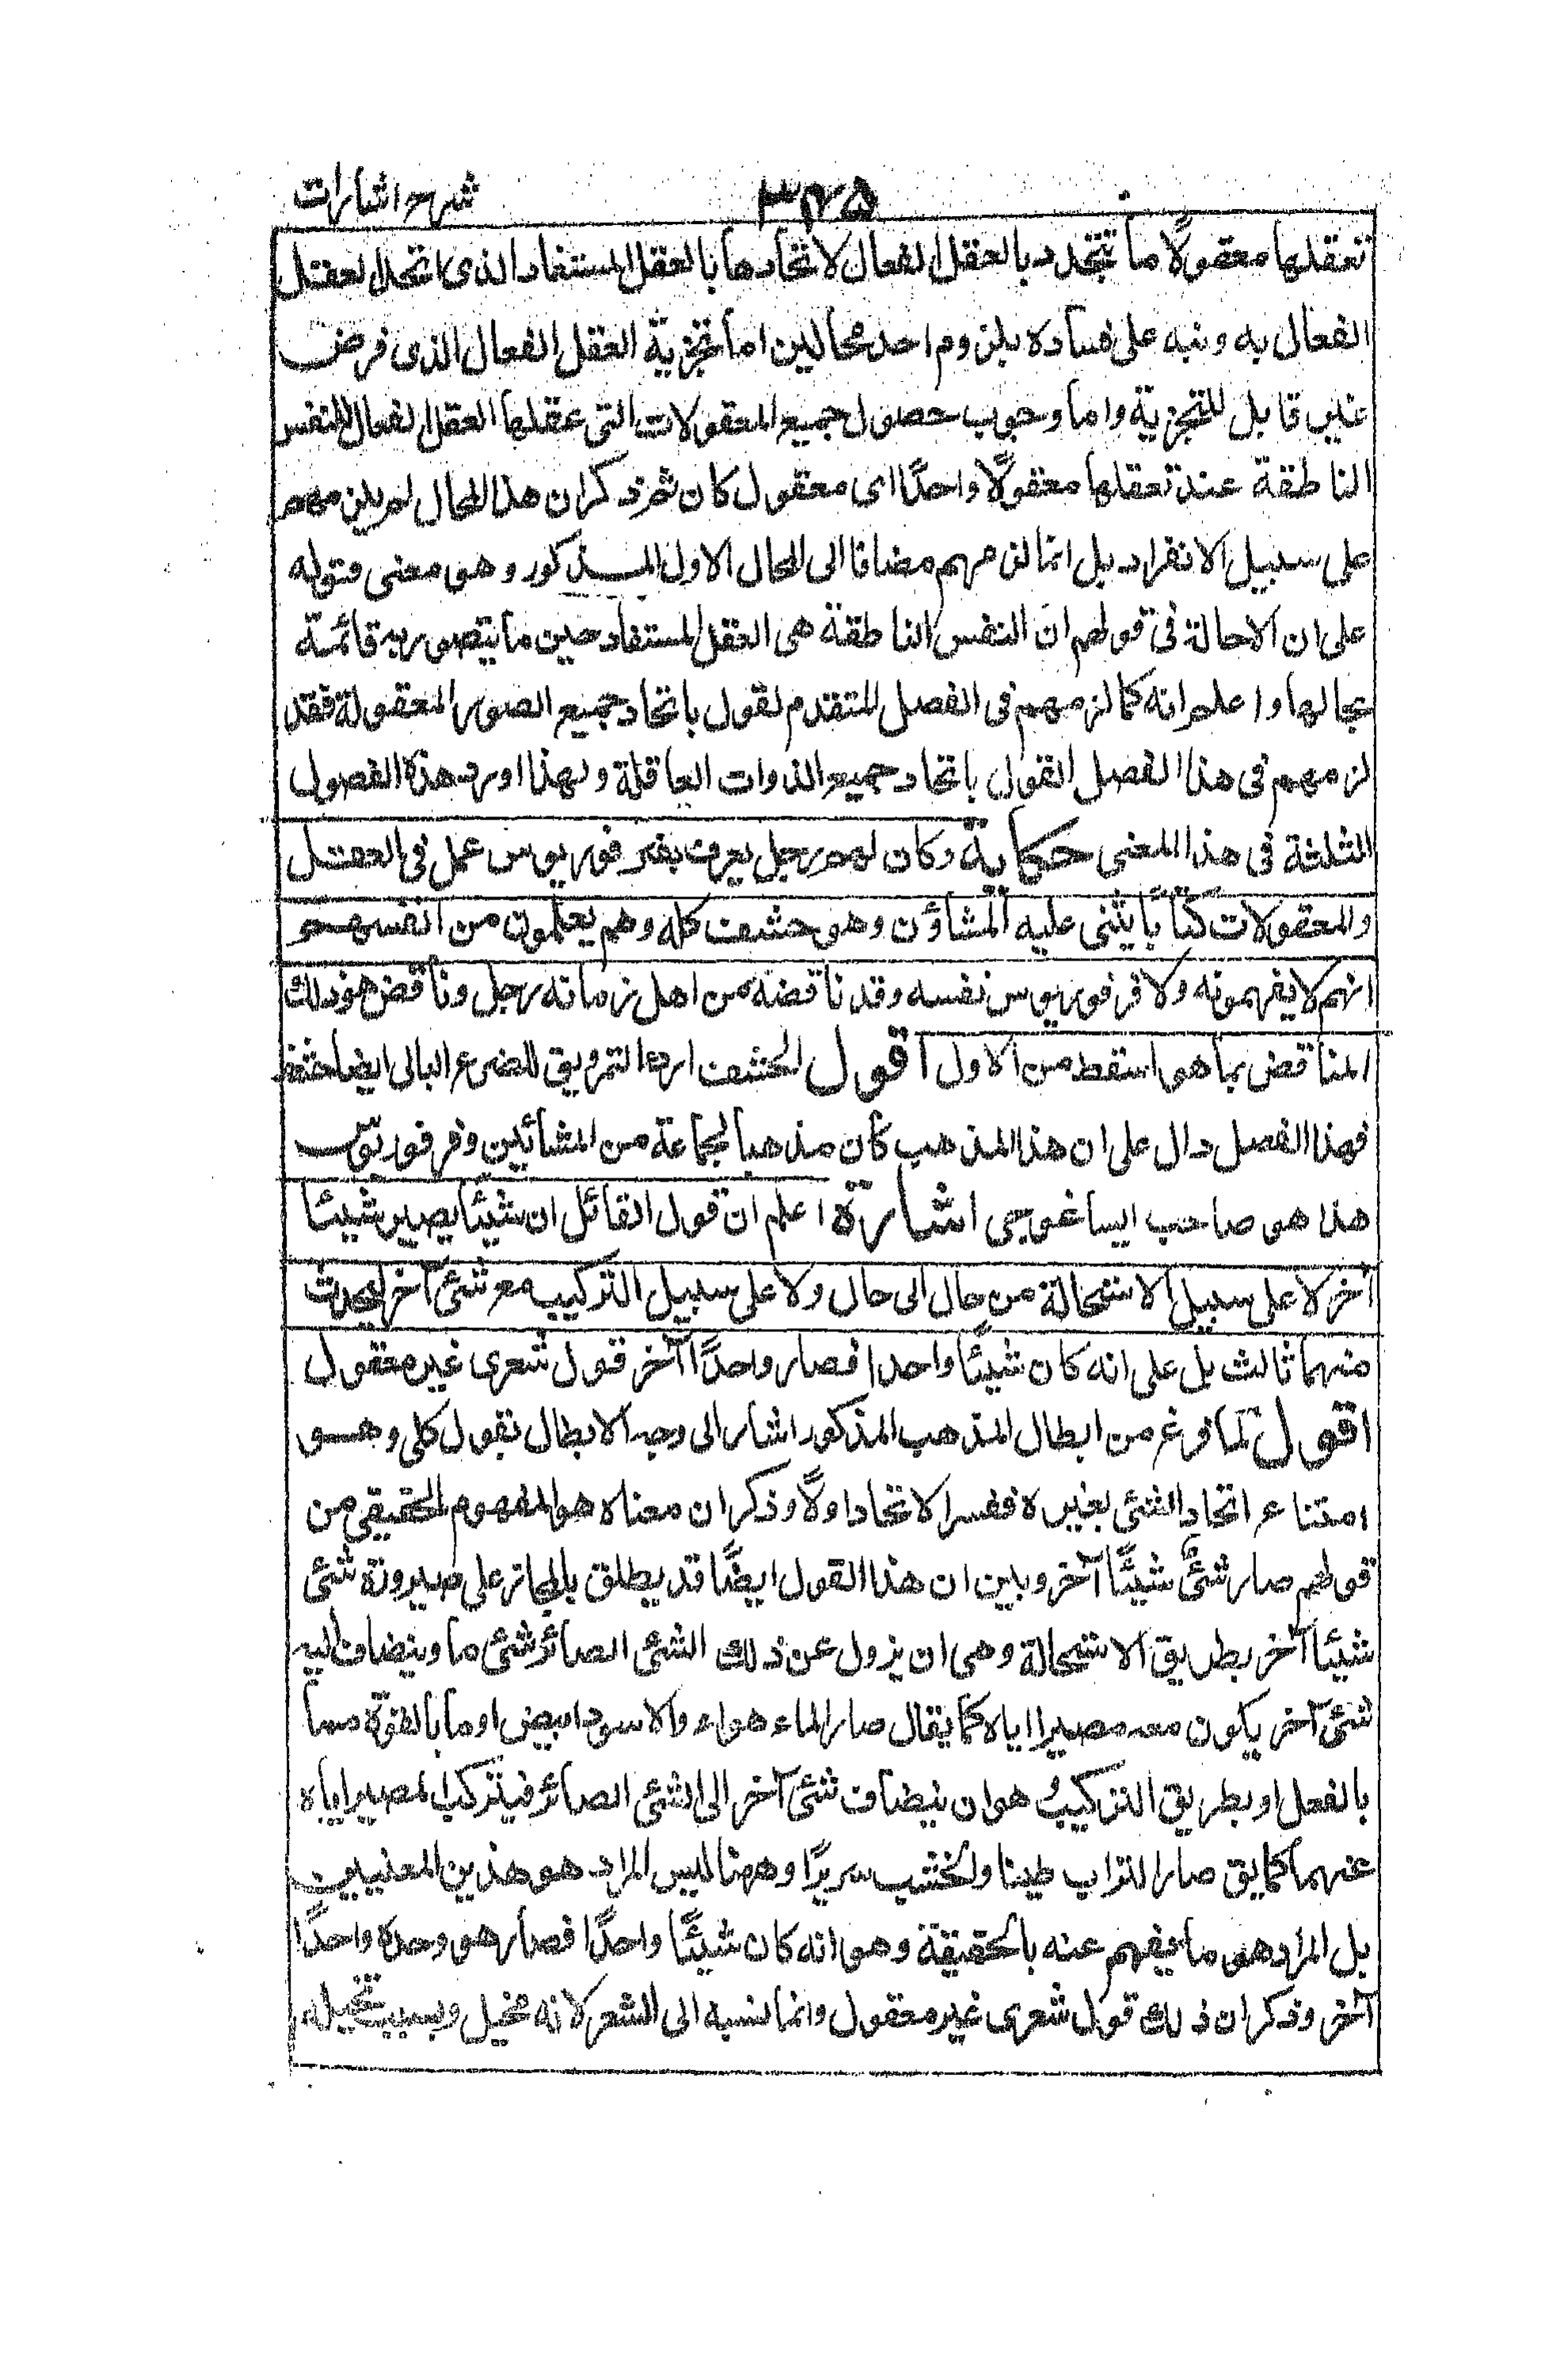 شرح اشارات
۳۴۵
تعقلها معقولًا ما تتحد بالعقل الفعال لاتحادها بالعقل المستفاد الذى اتحد العقل
الفعال به ونبه على فساده بلزوم احد محالين اما تجزية العقل الفعال الذى فرض
غير قابل للتجزية واما وجوب حصول جميع المعقولات التى عقلها العقل الفعال للنفس
الناطقة عند تعقلها معقولًا واحدًا اى معقول كان ثم ذكر ان هذا المحال لم يلزمهم
على سبيل الانفراد بل انما لزمهم مضافا الى المحال الاول المذكور وهو معنى قوله
على ان الاحالة فى قولهم ان النفس الناطقة هى العقل المستفاد حين ما يتصور به قائمة
بحالها واعلم انه كما لزمهم فى الفصل المتقدم القول باتحاد جميع الصور المعقولة فقد
لزمهم فى هذا الفصل القول باتحاد جميع الذوات العاقلة ولهذا اورد هذة الفصول
الثلثة فى هذا المعنى حكاية وكان لهم رجل يعرف بفرفوريوس عمل فى العقل
والمعقولات كتابًا يثنى عليه المشاؤن وهو حشف كله وهم يعلمون من انفسهم
انهم لا يفهمونه ولا فرفوريوس نفسه وقد ناقضه من اهل زمانه رجل وناقض هو ذلك
المناقض بما هو اسقط من الاول اقول الحشف اردء التمر ويق للضرع البالى ايضا حشف
فهذا الفصل دال على ان هذا المذهب كان مذهبا لجماعة من المشائين وفرفوريوس
هذا هو صاحب ايساغوجى اشارة اعلم ان قول القائل ان شيئًا يصير شيئًا
آخر لا على سبيل الاستحالة من حال الى حال ولا على سبيل التركيب مع شئ آخر ليحدث
منهما ثالث بل على انه كان شيئًا واحدا فصار واحدًا آخر قول شعرى غير معقول
اقول لما فرغ من ابطال المذهب المذكور اشار الى وجه الابطال بقول كلى وهو
امتناع اتحاد الشئ بغيره ففسر الاتحاد اولًا وذكر ان معناه هو المفهوم الحقيقى من
قولهم صار شئٌ شيئًا آخر وبين ان هذا القول ايضًا قد يطلق بالمجاز على صيرورة شئ
شيئًا آخر بطريق الاستحالة وهى ان يزول عن ذلك الشئ الصائر شئ ما وينضاف اليه
شئ آخر يكون معه مصيرا اياه كما يقال صار الماء هواء والاسود ابيض او ما بالقوة ما
بالفعل او بطريق التركيب هو ان ينضاف شئ آخر الى الشئ الصائر فيتركب المصير اياه
عنهما كما يق صار التراب طينا والخشب سريرًا وههنا ليس المراد هو هذين المعنيين
بل المراد هو ما يفهم عنه بالحقيقة وهو انه كان شيئًا واحدًا فصار هو وحدة واحدًا
آخر وذكر ان ذلك قول شعرى غير معقول وانما نسبه الى الشعر لانه مخيل وبسبب تخييله